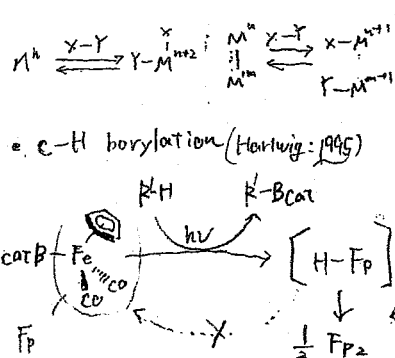 Mⁿ X–Y Y–Mⁿ⁺² X Mⁿ Mᵐ X–Y X–Mⁿ⁺¹ Y–Mᵐ⁺¹
• C–H borylation (Hartwig: 1995)
R'–H R'–Bcat
catB Fe CO CO hν [H–Fp]
Fp ½ Fp₂